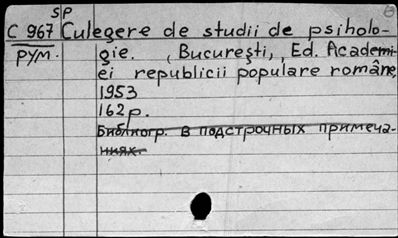 SP
C 967 Culegere de studii de psiholo-
рум. gie. (București,, Ed. Academi-
ei republicii populare române,
1953
162 p.
Библиогр. в подстрочных примеча-
ниях.